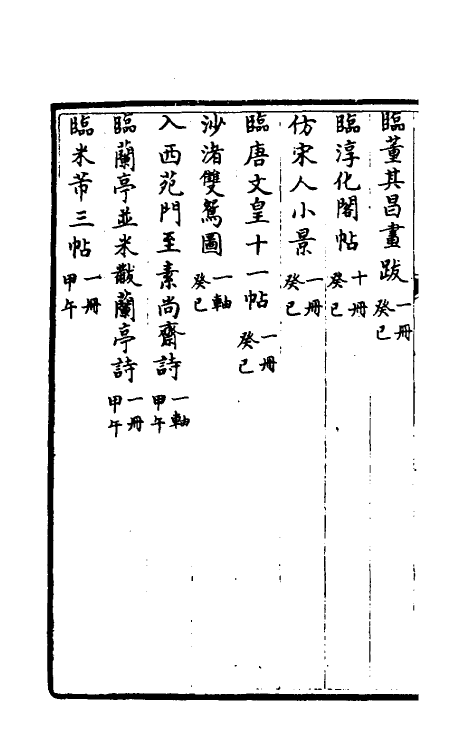 臨董其昌畫跋一冊癸巳
臨淳化閣帖十冊癸巳
仿宋人小景一冊癸巳
臨唐文皇十一帖一冊癸巳
沙渚雙鴛圖一軸癸巳
入西苑門至素尚齋詩一軸甲午
臨蘭亭並米黻蘭亭詩一冊甲午
臨米芾三帖一冊甲午